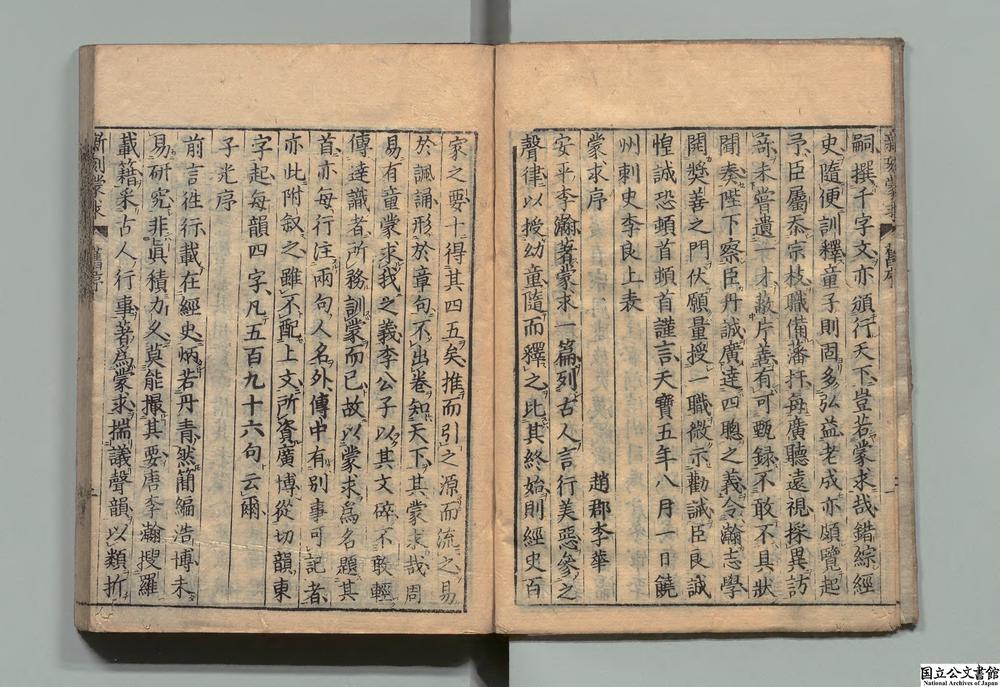 嗣撰千字文亦頒行天下豈若蒙求哉錯綜經
史隨便訓釋童子則固多弘益老成亦頗覽起
予臣屬忝宗枝職備藩扞每廣聽遠視採異訪
奇未嘗遺一才蔽片善有可甄録不敢不具狀
聞奏陛下察臣丹誠廣達四聰之義令瀚志學
開奬善之門伏願量授一職微示勸誡臣良誠
惶誠恐頓首頓首謹言天寶五年八月一日饒
州刺史李良上表
蒙求序 趙郡李華
安平李瀚著蒙求一篇列古人言行美惡參之
聲律以授幼童隨而釋之比其終始則經史百
家之要十得其四五矣推而引之源而流之易
於諷誦形於章句不出卷知天下其蒙求哉周
易有童蒙求我之義李公子以其文碎不敢輕
傳達識者所務訓蒙而已故以蒙求爲名題其
首亦每行注兩句人名外傳中有別事可記者
亦此附叙之雖不配上文所資廣博從切韻東
字起每韻四字凡五百九十六句云爾
子光序
前言徃行載在經史炳若丹青然簡編浩博未
易研究非眞積力久莫能撮其要唐李瀚搜羅
載籍采古人行事著爲蒙求揣議聲韻以類折
新刻蒙求 舊序
国立公文書館
National Archives of Japan